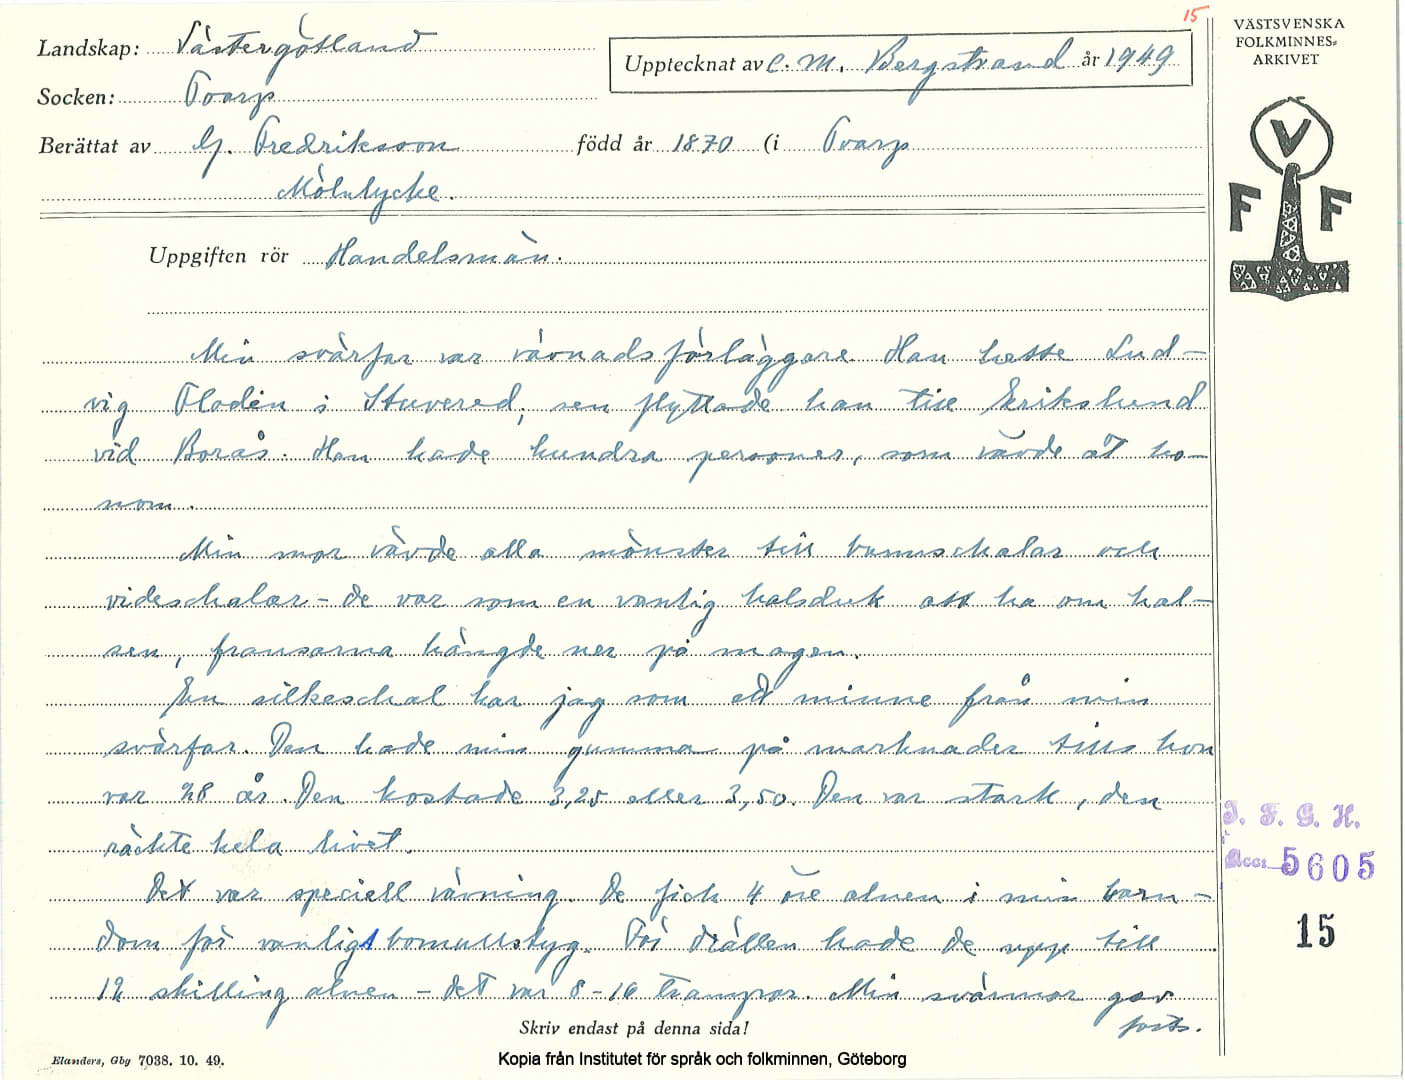 15
Landskap: Västergötland
Upptecknat av C. M. Bergstrand år 1949
VÄSTSVENSKA
FOLKMINNES=
ARKIVET
Socken: Toarp
Berättat av G. Fredriksson född år 1870 (i Toarp
Mölnlycke.
V
F F
Uppgiften rör Handelsmän.
Min svärfar var vävnadsförläggare. Han hette Lud-
vig Flodén i Stuvered, sen flyttade han till Erikslund
vid Borås. Han hade hundra personer, som vävde åt ho-
nom.
Min mor vävde alla mönster till bomschalar och
videschalar - de var som en vanlig halsduk att ha om hal-
sen, fransarna hängde ner på magen.
En silkeschal har jag som ett minne från min
svärfar. Den hade min gumma på marknader tills hon
var 28 år. Den kostade 3,25 eller 3,50. Den var stark, den
räckte hela livet.
Det var speciell vävning. De fick 4 öre alnen i min barn-
dom för vanligt bomullstyg. För drällen hade de upp till
12 skilling alnen - det var 8-16 trampor. Min svärmor gav
forts.
I. F. G. H.
Acc: 5605
15
Skriv endast på denna sida!
Elanders, Gbg 7038. 10. 49.
Kopia från Institutet för språk och folkminnen, Göteborg